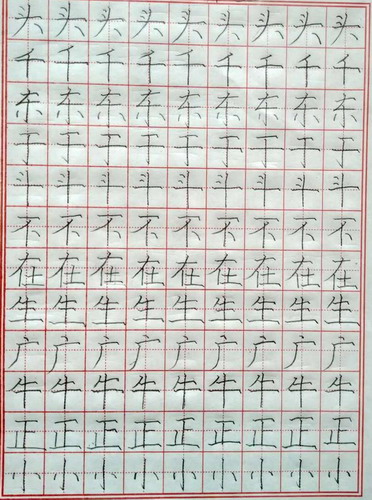 头头头头头头头头头
千千千千千千千千千
东东东东东东东东东
干干干干干干干干干
斗斗斗斗斗斗斗斗斗
不不不不不不不不不
在在在在在在在在在
生生生生生生生生生
广广广广广广广广广
牛牛牛牛牛牛牛牛牛
正正正正正正正正正
小小小小小小小小小